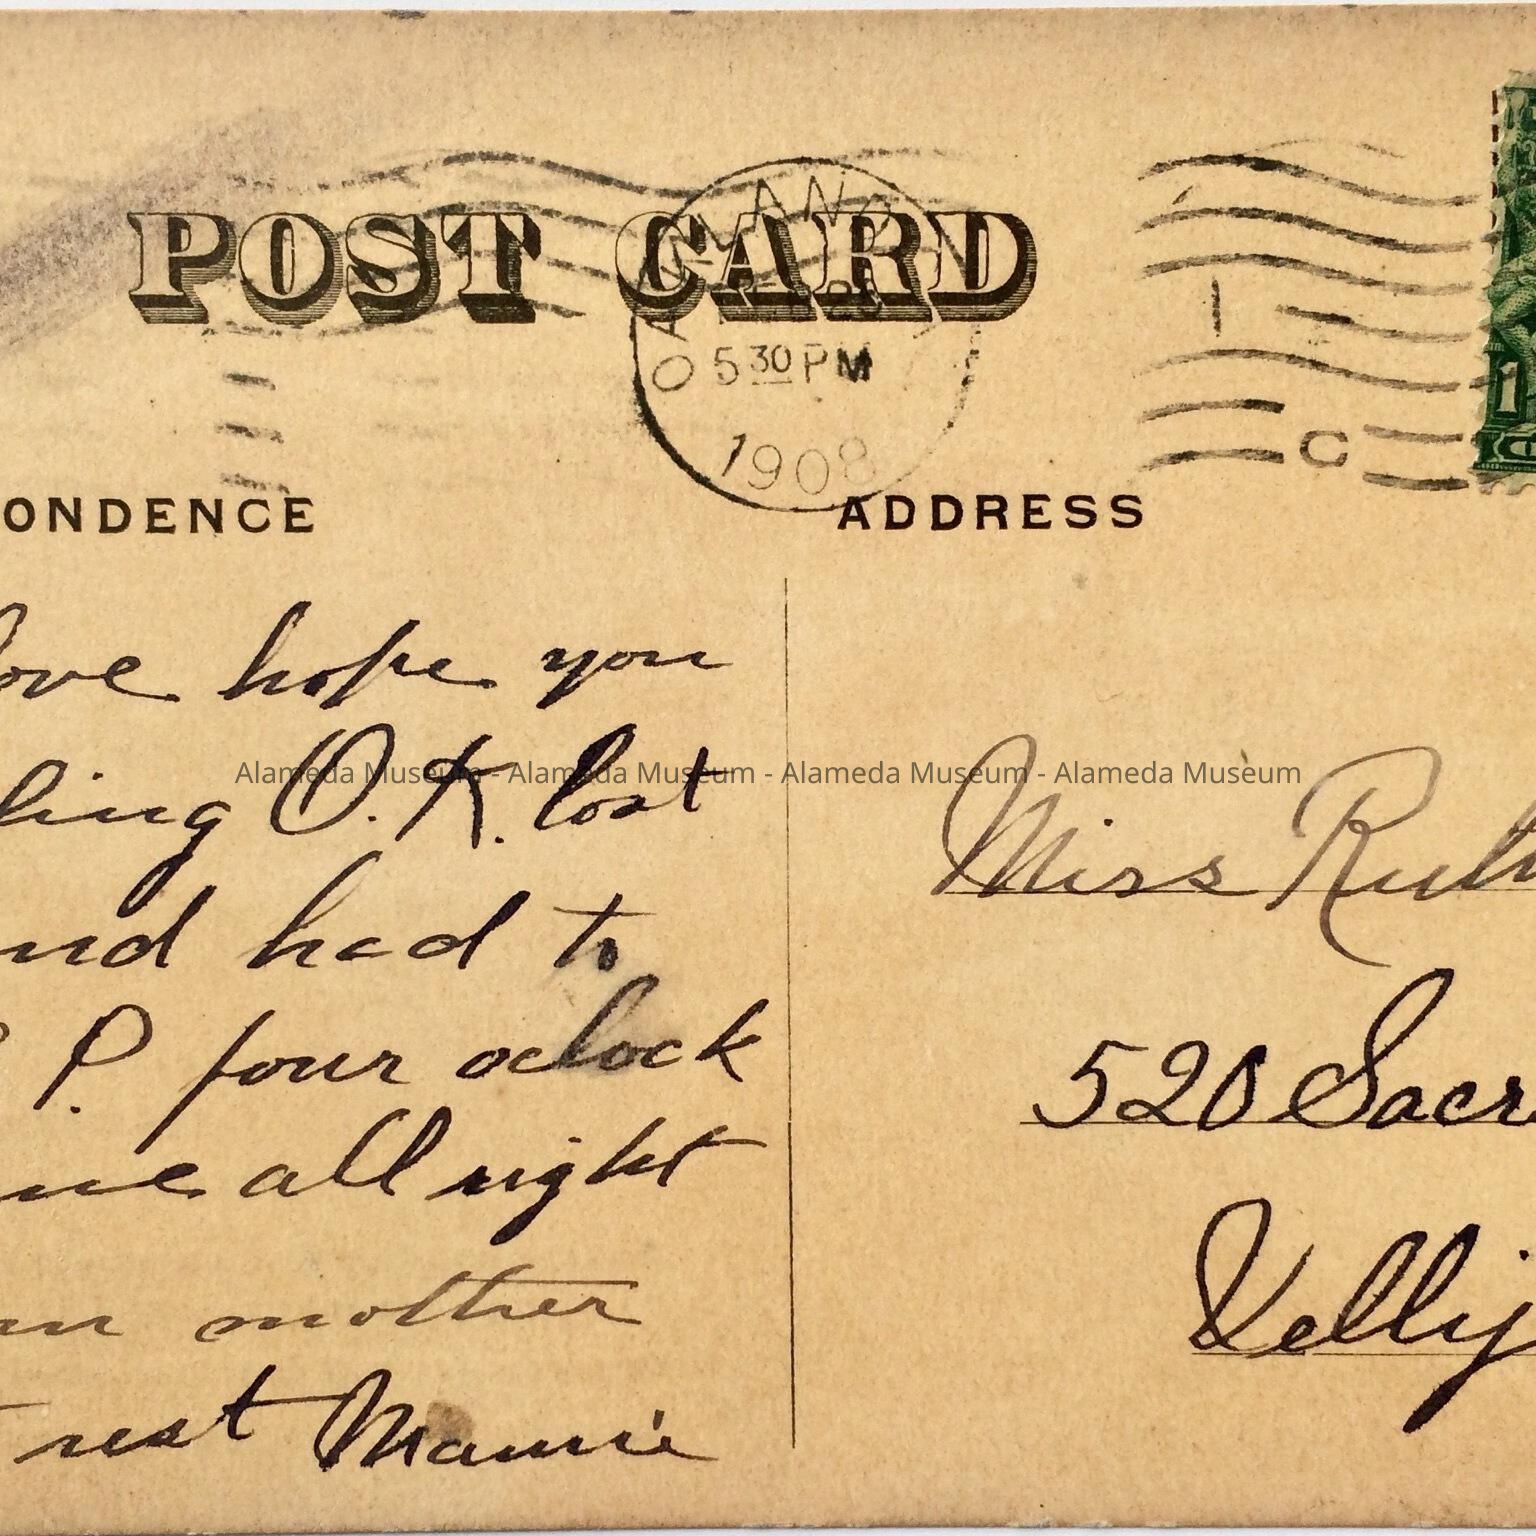 POST CARD
OAKLAND
5 30 PM
1908
C
1
ONDENCE
ADDRESS
love hope you
ling O.K. lost
nd had to
P. four oclock
me all right
mother
rest Mamie
Alameda Museum - Alameda Museum - Alameda Museum - Alameda Museum
Miss Ruth
520 Sacr
Vallij